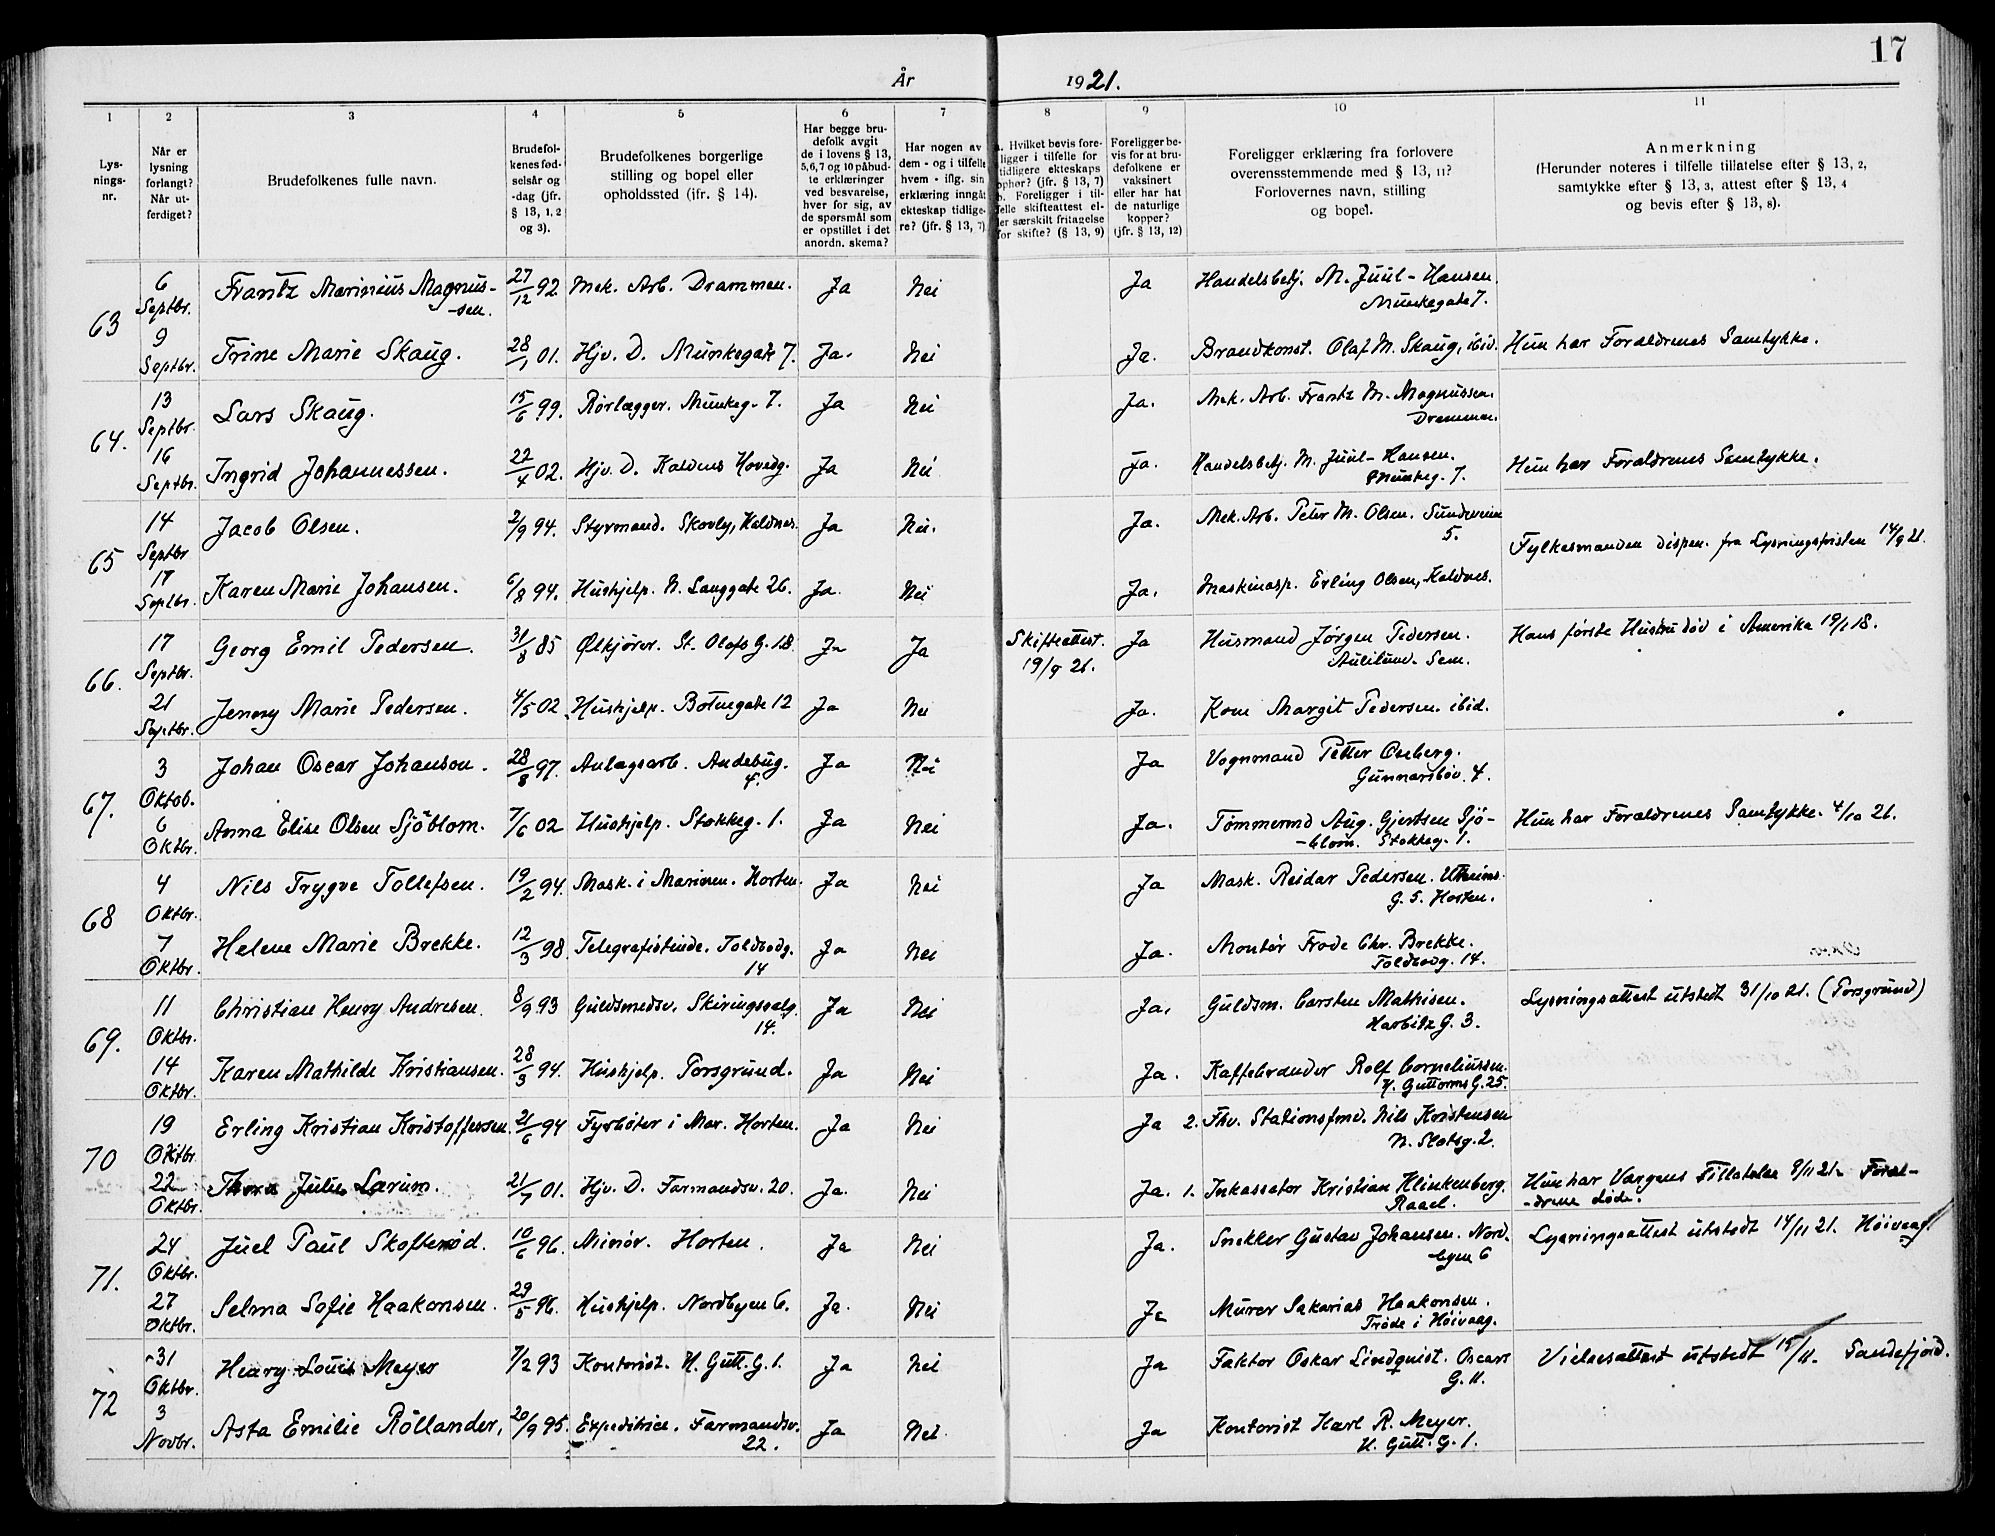 17
År 1921.
1 2 3 4 5 6 7 8 9 10 11
Lys-
nings-
nr.
Når er
lysning
forlangt?
Når ut-
ferdiget?
Brudefolkenes fulle navn.
Brudefol-
kenes fød-
selsår og
-dag (jfr.
§ 13, 1, 2
og 3).
Brudefolkenes borgerlige
stilling og bopel eller
opholdssted (jfr. § 14).
Har begge bru-
defolk avgit
de i lovens § 13,
5,6,7 og 10 påbud-
te erklæringer
ved besvarelse,
hver for sig, av
de spørsmål som
er opstillet i det
anordn. skema?
Har nogen av
dem - og i tilfelle
hvem - iflg. sin
erklæring inngåt
ekteskap tidlige-
re? (jfr. § 13, 7)
a. Hvilket bevis fore-
ligger i tilfelle for
tidligere ekteskaps
ophør? (jfr. § 13, 7)
b. Foreligger i til-
felle skifteattest el-
ler særskilt fritagelse
for skifte? (§ 13, 9)
Foreligger be-
vis for at bru-
defolkene er
vaksinert
eller har hat
de naturlige
kopper?
(jfr. § 13, 12)
Foreligger erklæring fra forlovere
overensstemmende med § 13, 11?
Forlovernes navn, stilling
og bopel.
Anmerkning
(Herunder noteres i tilfelle tillatelse efter § 13, 2,
samtykke efter § 13, 3, attest efter § 13, 4
og bevis efter § 13, 8).
63
6 Septbr. Frantz Marinius Magnus- 27/12 92 Mek. Arb. Drammen. Ja Nei Ja Handelsbetj. M. Juul-Hansen.
-sen. Munkegate 7.
9 Septbr. Trine Marie Skaug. 28/1 01. Hjv. D. Munkegate 7. Ja. Nei Ja. Brandkonst. Olaf M. Skaug, ibid. Hun har Forældrenes Samtykke.
64.
13 Septbr. Lars Skaug. 15/6 99. Rørlægger. Munkeg. 7. Ja Nei Ja. Mek. Arb. Frantz M. Magnussen.
Drammen.
16 Septbr. Ingrid Johannessen. 22/4 02. Hjv. D. Kaldnes Hovedg. Ja Nei Ja. Handelsbetj. M. Juul-Hansen. Hun har Forældrenes Samtykke.
Munkeg. 7.
65
14 Septbr Jacob Olsen. 2/9 94. Styrmand. Skovly, Kaldnes. Ja Nei. Ja. Mek. Arb. Peter M. Olsen. Sundveien
5.
Fylkesmanden dispen. fra Lysningsfristen 14/9 21.
17 Septbr. Karen Marie Johansen. 6/8 94. Hushjelp. N. Langgate 26. Ja. Nei Ja. Maskinasp. Erling Olsen, Kaldnes.
66.
17 Septbr. Georg Emil Pedersen. 31/8 85 Ølkjører. St. Olafs G. 18 Ja Ja Skifteattest. Ja Husmand Jørgen Pedersen. Hans første Hustru død i Amerika 19/1 18.
19/9 21. Aulilund. Sem.
21 Septbr. Jenny Marie Pedersen. 4/5 02. Hushjelp. Botnegate 12 Ja Nei Ja. Kone Margit Pedersen. ibid.
67.
3 Oktob. Johan Oscar Johanson. 28/8 97. Anlægsarb. Andebug. Ja Nei Ja Vognmand Petter Oseberg.
4. Gunnarsbøv. 4.
6 Oktbr. Anna Elise Olsen Sjöblom. 7/6 02 Hushjelp. Stokkeg. 1. Ja Nei Ja. Tømmermd Aug. Gjertsen Sjö- Hun har Forældrenes Samtykke. 4/10 21.
-blom. Stokkeg. 1.
68
4 Oktbr. Nils Trygve Tollefsen. 19/2 94. Mask. i Marinen. Horten. Ja Nei Ja Mask. Reidar Pedersen.
G. 5. Horten.
7 Oktbr. Helene Marie Brekke. 12/3 98 Telegrafistinde. Toldbodg. Ja Nei Ja. Montør Frode Chr. Brekke.
14 Toldbodg. 14.
69.
11 Oktbr. Christian Henry Andresen. 8/9 93 Guldsmedsv. Skiringssalg. Ja Nei Ja. Guldsm. Carsten Mathisen. Lysningsattest utstedt 31/10 21. (Porsgrund)
14. Harbitz G. 3.
14 Oktbr. Karen Mathilde Kristiansen. 28/3 94. Hushjelp. Porsgrund. Ja Nei Ja. Kaffebrænder Rolf Corneliussen.
H. Guttorms G. 25.
70
19 Oktbr. Erling Kristian Kristoffersen. 21/6 94 Fyrbøter i Mar. Horten. Ja Nei Ja 2. Fhv. Stationsfmd. Nils Kristensen
N. Slotsg. 2.
22 Oktbr. Thora Julie Lærum. 21/7 01. Hjv. D. Farmandsv. 20. Ja. Nei Ja. 1. Inkassator Kristian Klinkenberg. Hun har Værgens Tillatelse 9/11 21. Foræl-
Raael. -drene døde.
71.
24 Oktbr. Juel Paul Skofterød. 10/6 96. Minør. Horten. Ja Nei Ja. Snekker Gustav Johansen. Nord- Lysningsattest utstedt 14/11 21. Høivaag.
byen 6
27 Oktbr. Selma Sofie Haakonsen. 29/5 96. Hushjelp. Nordbyen 6. Ja. Nei Ja Murer Sakarias Haakonsen.
Trøde i Høivaag.
72
31 Oktbr. Henry Louis Meyer 7/2 93 Kontorist. H. Gutt. G. 1. Ja Nei Ja Faktor Oskar Lindquist. Oscars Vielsesattest utstedt 15/11. Sandefjord.
G. 11.
3 Novbr. Asta Emilie Röllander. 20/9 95. Expeditrice. Farmandsv. Ja Nei Ja Kontorist Harl R. Meyer.
22. H. Gutt. G. 1.